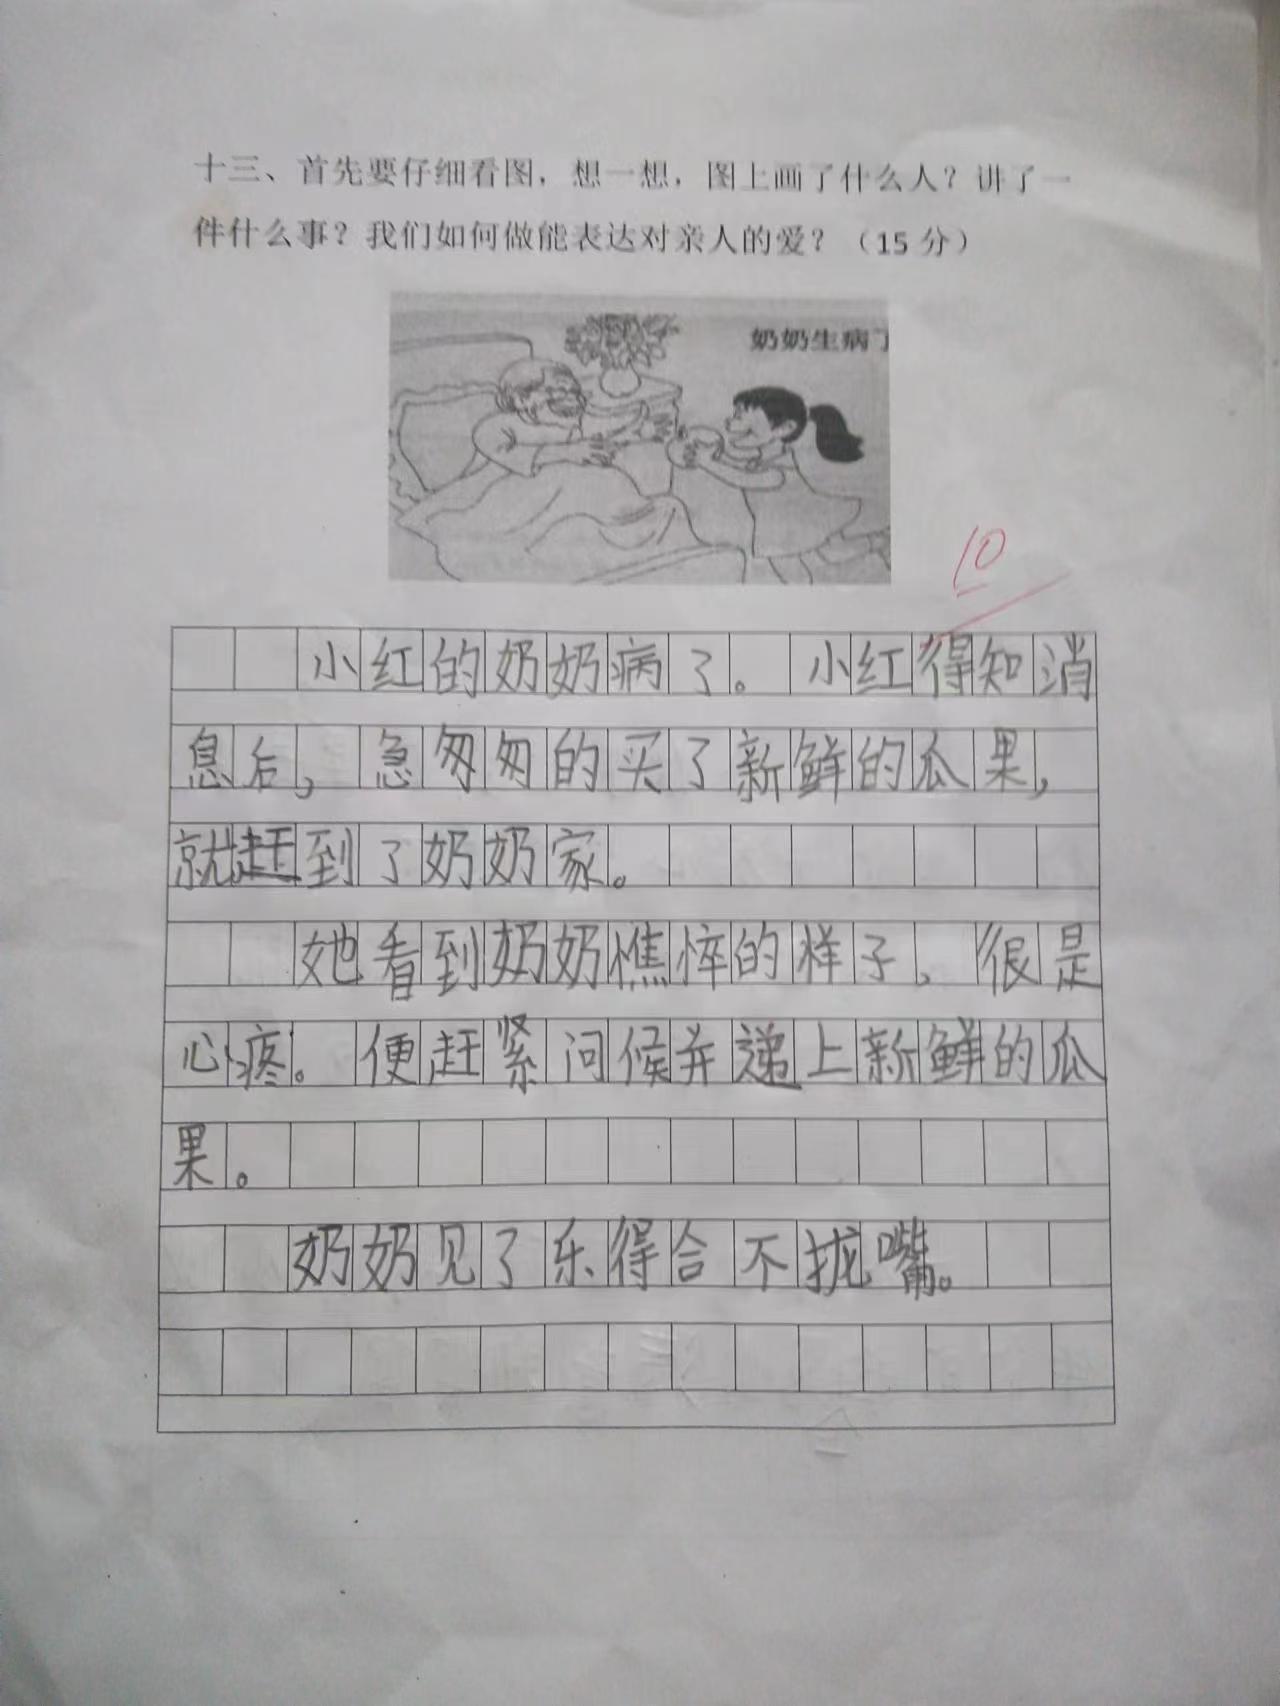 十三、首先要仔细看图，想一想，图上画了什么人？讲了一
件什么事？我们如何做能表达对亲人的爱？（15 分）
奶奶生病了
10
小红的奶奶病了。小红得知消
息后，急匆匆的买了新鲜的瓜果，
就赶到了奶奶家。
她看到奶奶憔悴的样子，很是
心疼。便赶紧问候并递上新鲜的瓜
果。
奶奶见了乐得合不拢嘴。